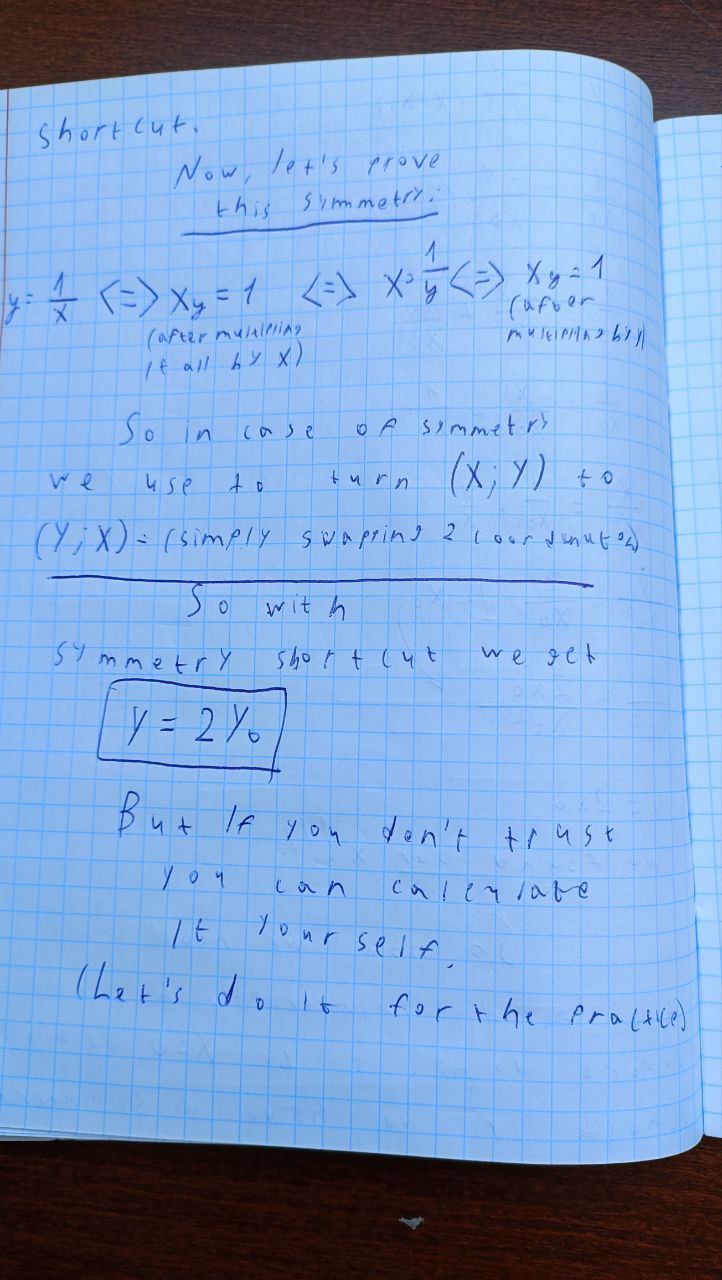 shortcut.
Now, let's prove
this symmetry.
y = 1/x <=> xy = 1 <=> x = 1/y <=> xy = 1
(after multipling it all by x)
(after multipling by y)
So in case of symmetry
we use to turn (X; Y) to
(Y; X) = (simply swaping 2 coordinates)
So with
symmetry shortcut we get
y = 2y₀
But If you don't trust
you can calculate
It yourself.
(Let's do it for the practice)